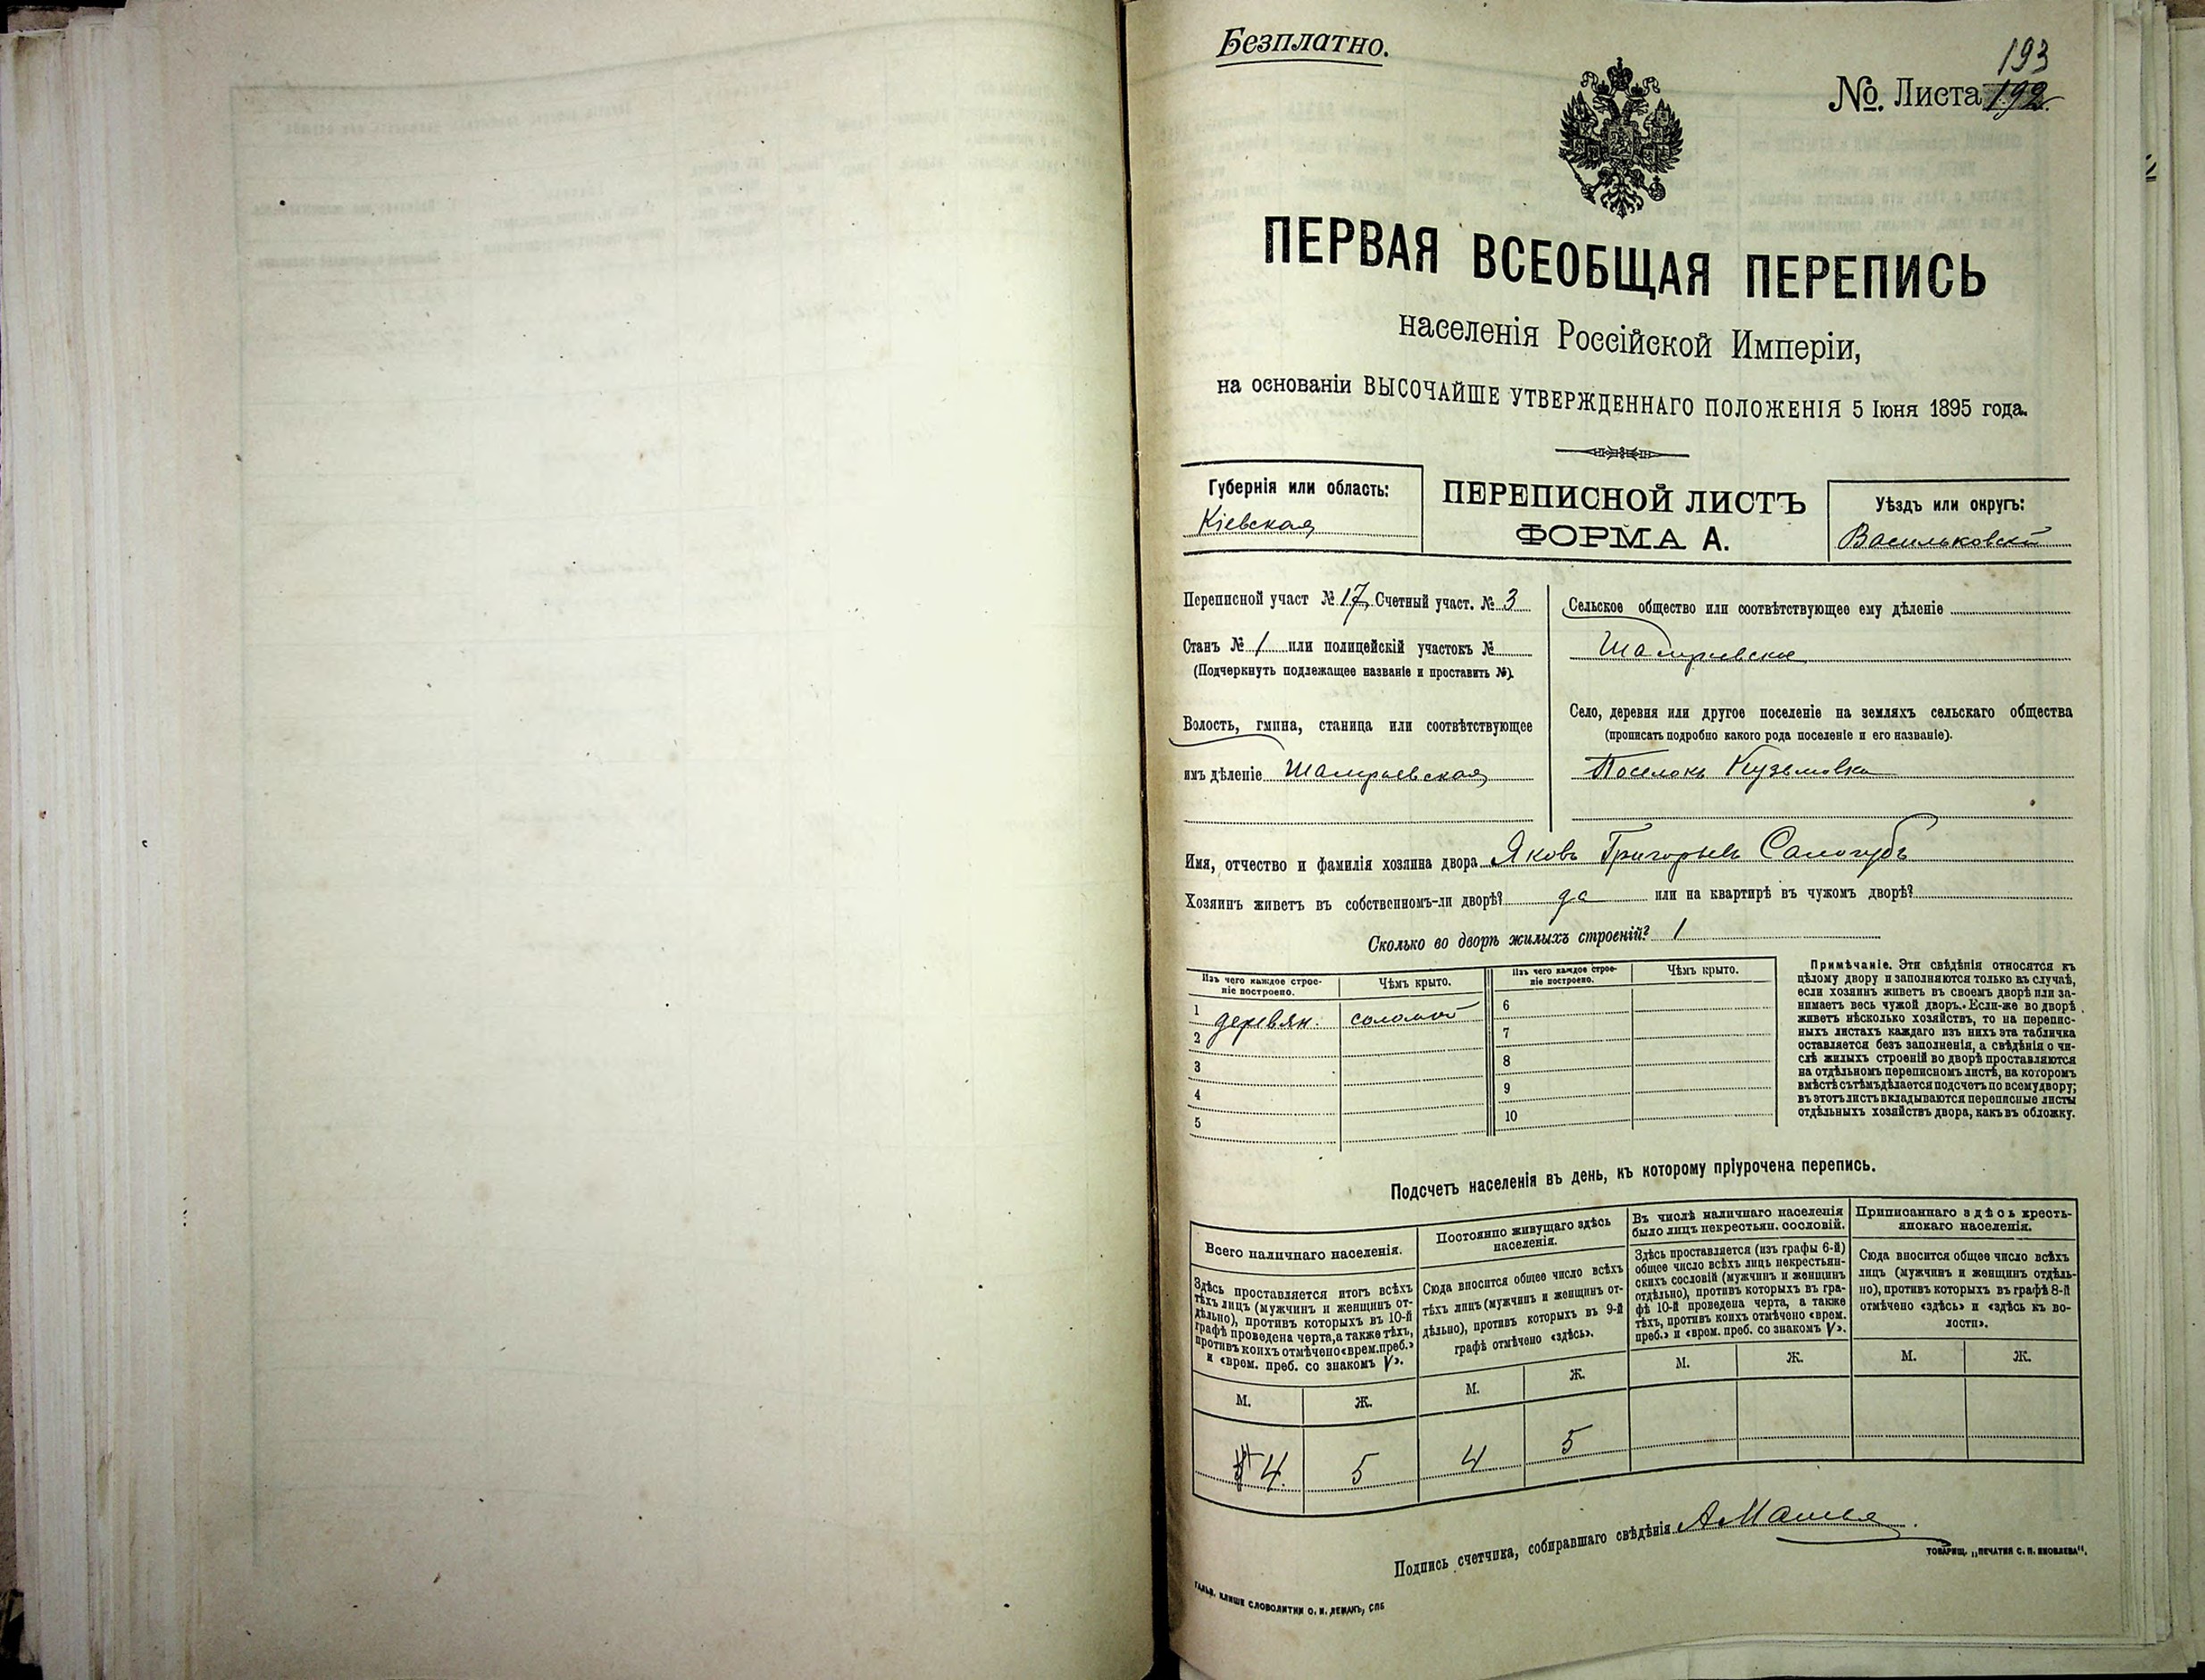 Безплатно.
193
№. Листа 192.
ПЕРВАЯ ВСЕОБЩАЯ ПЕРЕПИСЬ
населенія Россійской Имперіи,
на основаніи ВЫСОЧАЙШЕ УТВЕРЖДЕННАГО ПОЛОЖЕНІЯ 5 Іюня 1895 года.
Губернія или область:
Кіевская
ПЕРЕПИСНОЙ ЛИСТЪ
ФОРМА А.
Уѣздъ или округъ:
Васильковскій
Переписной участ № 17, Счетный участ. № 3
Станъ № 1 или полицейскій участокъ №
(Подчеркнуть подлежащее названіе и проставить №).
Волость, гмина, станица или соотвѣтствующее
имъ дѣленіе Шамраевская
Сельское общество или соотвѣтствующее ему дѣленіе
Шамраевское
Село, деревня или другое поселеніе на земляхъ сельскаго общества
(прописать подробно какого рода поселеніе и его названіе).
Поселокъ Кузьмовка
Имя, отчество и фамилія хозяина двора Яковъ Григорьевъ Самогубъ
Хозяинъ живетъ въ собственномъ-ли дворѣ? да или на квартирѣ въ чужомъ дворѣ?
Сколько во дворѣ жилыхъ строеній? 1
Изъ чего каждое строе-
ніе построено.
Чѣмъ крыто.
Изъ чего каждое строе-
ніе построено.
Чѣмъ крыто.
1 деревян. соломой 6
2 7
3 8
4 9
5 10
Примѣчаніе. Эти свѣдѣнія относятся къ
цѣлому двору и заполняются только въ случаѣ,
если хозяинъ живетъ въ своемъ дворѣ или за-
нимаетъ весь чужой дворъ. Если-же во дворѣ
живетъ нѣсколько хозяйствъ, то на перепис-
ныхъ листахъ каждаго изъ нихъ эта табличка
оставляется безъ заполненія, а свѣдѣнія о чи-
слѣ жилыхъ строеній во дворѣ проставляются
на отдѣльномъ переписномъ листѣ, на которомъ
вмѣстѣ съ тѣмъ дѣлается подсчетъ по всему двору;
въ этотъ листъ вкладываются переписные листы
отдѣльныхъ хозяйствъ двора, какъ въ обложку.
Подсчетъ населенія въ день, къ которому пріурочена перепись.
Всего наличнаго населенія.
Здѣсь проставляется итогъ всѣхъ
тѣхъ лицъ (мужчинъ и женщинъ от-
дѣльно), противъ которыхъ въ 10-й
графѣ проведена черта, а также тѣхъ,
противъ коихъ отмѣчено «врем. преб.»
и «врем. преб. со знакомъ V».
М. Ж.
4. 5
Постоянно живущаго здѣсь
населенія.
Сюда вносится общее число всѣхъ
тѣхъ лицъ (мужчинъ и женщинъ от-
дѣльно), противъ которыхъ въ 9-й
графѣ отмѣчено «здѣсь».
М. Ж.
4 5
Въ числѣ наличнаго населенія
было лицъ некрестьян. сословій.
Здѣсь проставляется (изъ графы 6-й)
общее число всѣхъ лицъ некрестьян-
скихъ сословій (мужчинъ и женщинъ
отдѣльно), противъ которыхъ въ гра-
фѣ 10-й проведена черта, а также
тѣхъ, противъ коихъ отмѣчено «врем.
преб.» и «врем. преб. со знакомъ V».
М. Ж.
Приписаннаго здѣсь кресть-
янскаго населенія.
Сюда вносится общее число всѣхъ
лицъ (мужчинъ и женщинъ отдѣль-
но), противъ которыхъ въ графѣ 8-й
отмѣчено «здѣсь» и «здѣсь къ во-
лости».
М. Ж.
Подпись счетчика, собиравшаго свѣдѣнія
ТОВАРИЩ. „ПЕЧАТНЯ С. П. ЯКОВЛЕВА".
ГАЛЬВ. КЛИШИ СЛОВОЛИТНИ О. И. ЛЕМАНЪ, СПБ